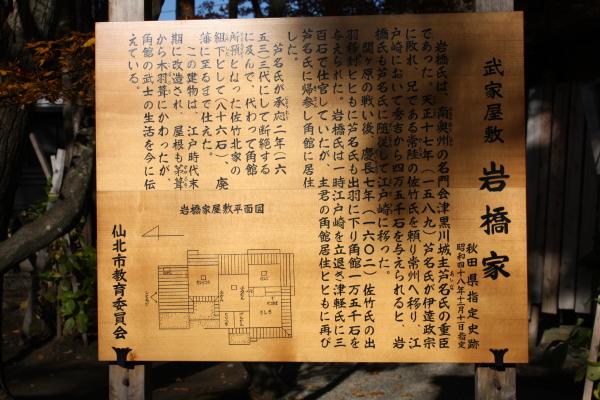 武家屋敷 岩橋家
秋田県指定史跡
昭和四十八年十二月十一日指定
岩橋氏は、南奥州の名門会津黒川城主芦名氏の重臣
であった。天正十七年（一五八九）芦名氏が伊達政宗
に敗れ、兄である常陸の佐竹氏を頼り常州へ移り、江
戸崎において秀吉から四万五千石を与えられると、岩
橋氏も芦名氏に随従して江戸崎に移った。
関ヶ原の戦い後、慶長七年（一六〇二）佐竹氏の出
羽移封とともに芦名氏も出羽に下り角館一万五千石を
与えられた。岩橋氏は一時江戸崎を立退き津軽氏に三
百石で仕官していたが、主君の角館居住とともに再び
芦名氏に帰参し角館に居住
した。
芦名氏が承応二年（一六
五三）三代にして断絶する
に及んで、代わって角館
所預となった佐竹北家の
組下として（八十六石）、廃
藩に至るまで仕えた。
この建物は、江戸時代末
期に改造され、屋根も茅葺
から木羽葺にかわったが、
角館の武士の生活を今に伝
えている。
岩橋家屋敷平面図
仙北市教育委員会